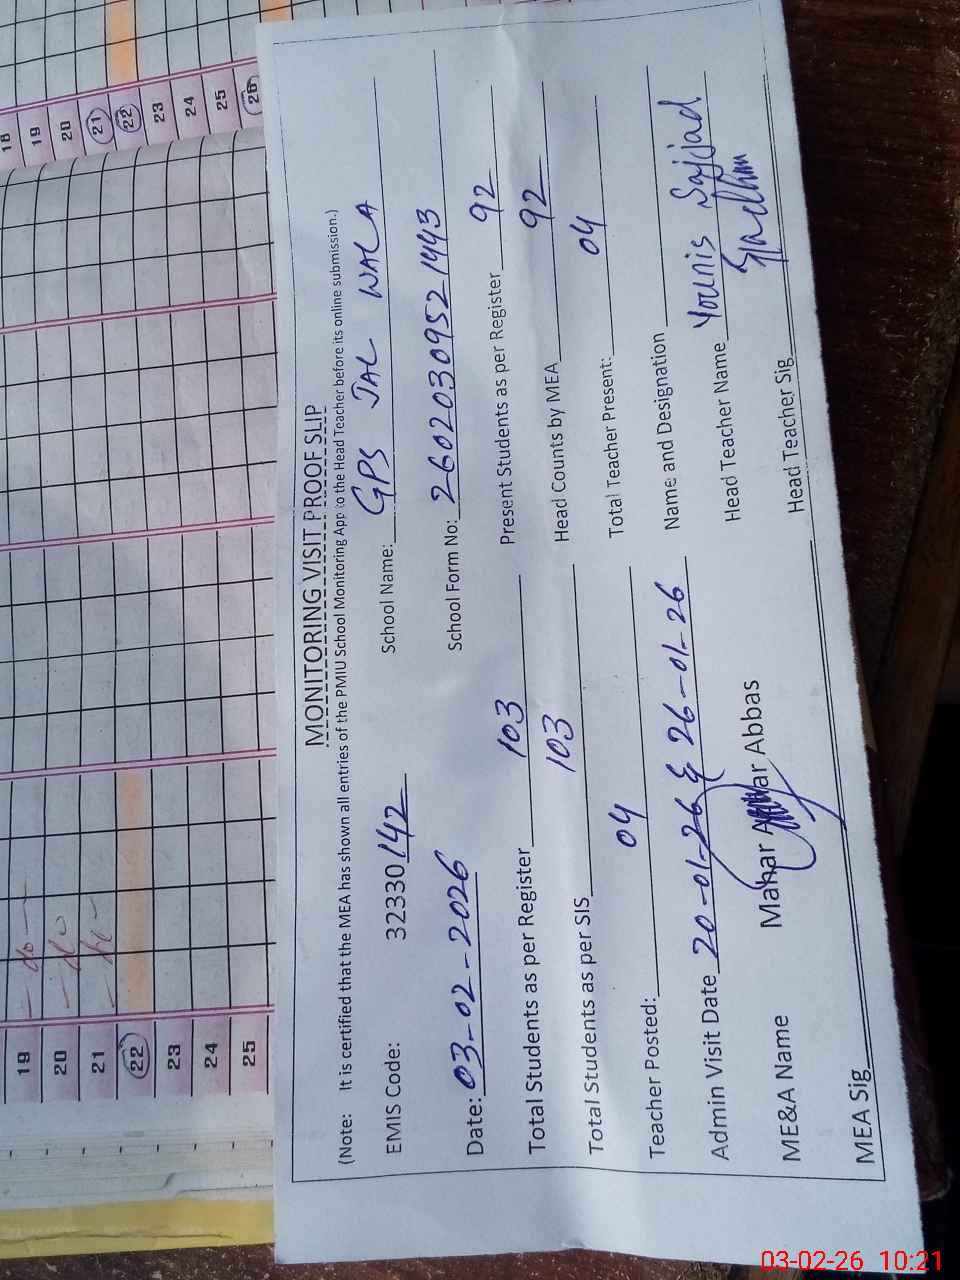 MONITORING VISIT PROOF SLIP
(Note: It is certified that the MEA has shown all entries of the PMIU School Monitoring App to the Head Teacher before its online submission.)
EMIS Code: 32330142 School Name: GPS JAL WALA
Date: 03-02-2026 School Form No: 26020309521443
Total Students as per Register 103 Present Students as per Register 92
Total Students as per SIS 103 Head Counts by MEA 92
Teacher Posted: 04 Total Teacher Present: 04
Admin Visit Date 20-01-26 & 26-01-26 Name and Designation
ME&A Name Mahar Abbas Head Teacher Name Younis Sajjad
MEA Sig Head Teacher Sig
18
19
20
21
22
23
24
25
26
19 -do-
20
21
22
23
24
25
03-02-26 10:21